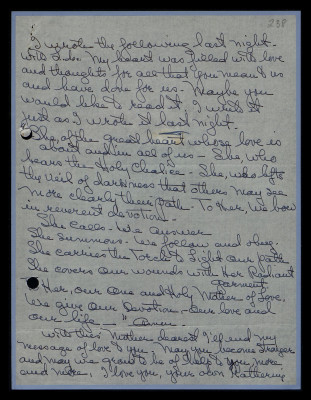 238
I wrote the following last night -
My heart was filled with love
and thoughts for all that you mean to us
and have done for us - Maybe you
would like to read it, I write it
just as I wrote it last night.
She, of the great heart whose love is
about and in all of us - She, who
bears the Holy Chalice - She, who lifts
the veil of darkness that others may see
more clearly their path - To Her, we bow
in reverent devotion -
She calls - We answer
She summons - We follow and obey.
She carries the Torch to light our path
She covers our wounds with Her Radiant
garment
Her, our One and Holy Mother of Love,
We give our Devotion - our love and
our life - " Amen -
With this Mother dearest I'll end my
message of love to you. May you become stronger
and may we grow to be of help to you more
and more, I love you, your own Katherine